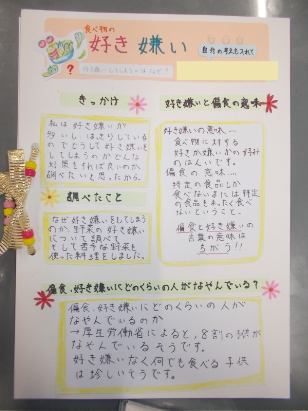 食べ物の
好き嫌い
?
きっかけ
私は好き嫌いが
多いしはっきりしている
のでどうして好き嫌いを
してしまうのかどんな
対策をすれば良いのか
調べたいと思ったから。
好き嫌いと偏食の意味
好き嫌いの意味…
食べ物に対する
好きか嫌いかの好み
のはんいです。
偏食の意味…
特定の食品しか
食べない、または特定
の食品をまったく食べ
ないということ。
偏食と好き嫌いの
言葉の意味は
ちがう!!
調べたこと
なぜ好き嫌いをしてしまう
のか、野菜の好き嫌い
について調べ、
そして苦手な野菜を
使った料理をしました。
偏食、好き嫌いにどのくらいの人がなやんでいる?
偏食、好き嫌いにどのくらいの人が
なやんでいるのか
→厚生労働省によると、8割の子供が
なやんでいるそうです。
好き嫌いなく何でも食べる子供
は珍しいそうです。